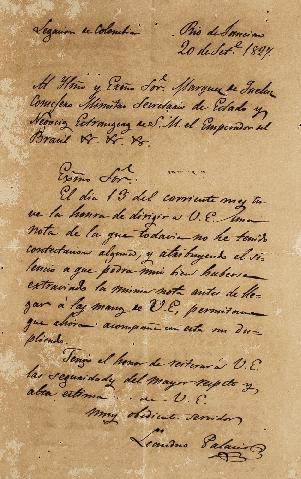 Legacion de Colombia
Rio de Janeiro
20 de Set.e 1827
Al Illmo y Exmo Sor. Marques de Queluz
Consejero Ministro Secretario de Estado y
Negocios Estrangeros de S. M. el Emperador del
Brasil &. &. &.
Exmo Sor.
El dia 13 del corriente mes tu-
ve la honra de dirigir a V. E. una
nota de la que todavia no he tenido
contestacion alguna, y atribuyendo el si-
lencio a que podra mui bien haberse
extraviado la misma nota antes de lle-
gar á las manos de V. E, permitame
que ahora acompañe con esta su du-
plicado.
Tengo el honor de reiterar á V. E.
las seguridades del mayor respeto y
alta estima V. E.
muy obediente servidor
Leandro Palacios